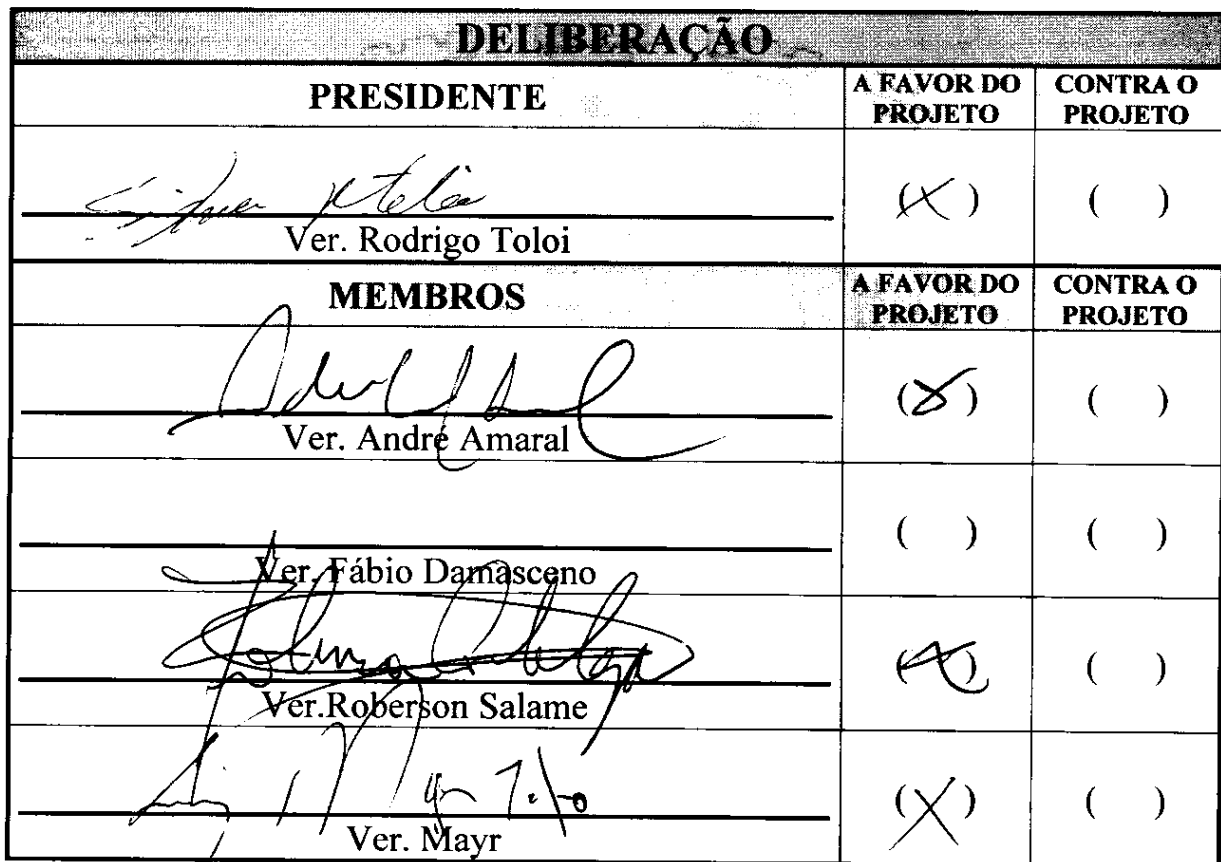 DELIBERAÇÃO
PRESIDENTE
A FAVOR DO PROJETO
CONTRA O PROJETO
(X) ( )
Ver. Rodrigo Toloi
MEMBROS
A FAVOR DO PROJETO
CONTRA O PROJETO
(X) ( )
Ver. André Amaral
( ) ( )
Ver. Fábio Damasceno
(X) ( )
Ver.Roberson Salame
(X) ( )
Ver. Mayr